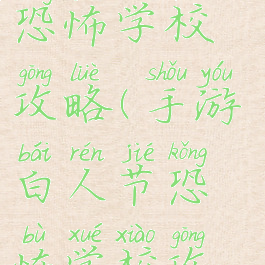 恐怖学校
gòng lüè shǒu yóu
攻略(手游
bái rén jié kǒng
白人节恐
bù xué xiào gòng
怖学校攻